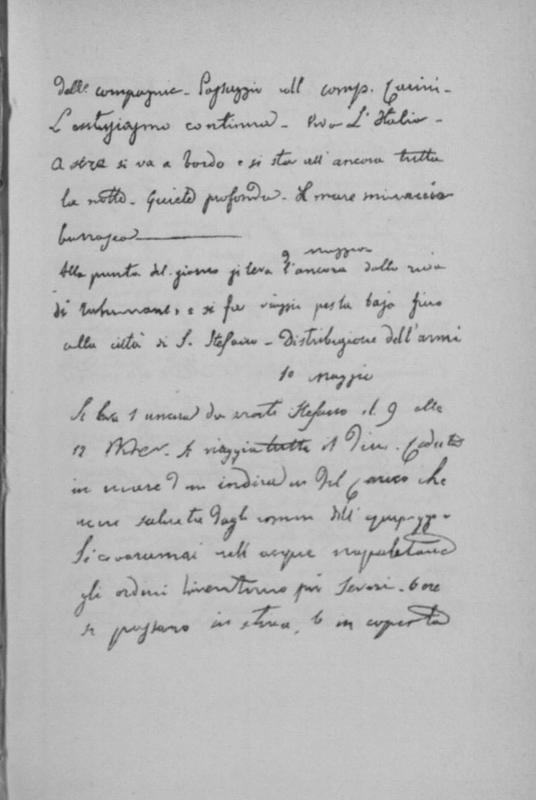 delle compagnie - Passaggio all comp. Cairoli -
L'entusiasmo continua - Viva L'Italia -
A sera si va a bordo e si sta all'ancora tutta
la notte - Quiete profonda - Il mare minaccia
burrasca
9 maggio
Alla punta del giorno si leva l'ancora dalla
di e si fa viaggio per la baja fino
alla città di S. Stefano - Distribuzione dell'armi
10 maggio
Si leva l'ancora da Stefano il 9 alle
12 Si viaggia tutto il dì. Caduta
in mare d'un individuo del Carico che
salvato dagli uomini dell'equipaggio
nell'acque napoletane
gli ordini diventano più severi. 6 ore
si passano in stiva, 6 in coperta